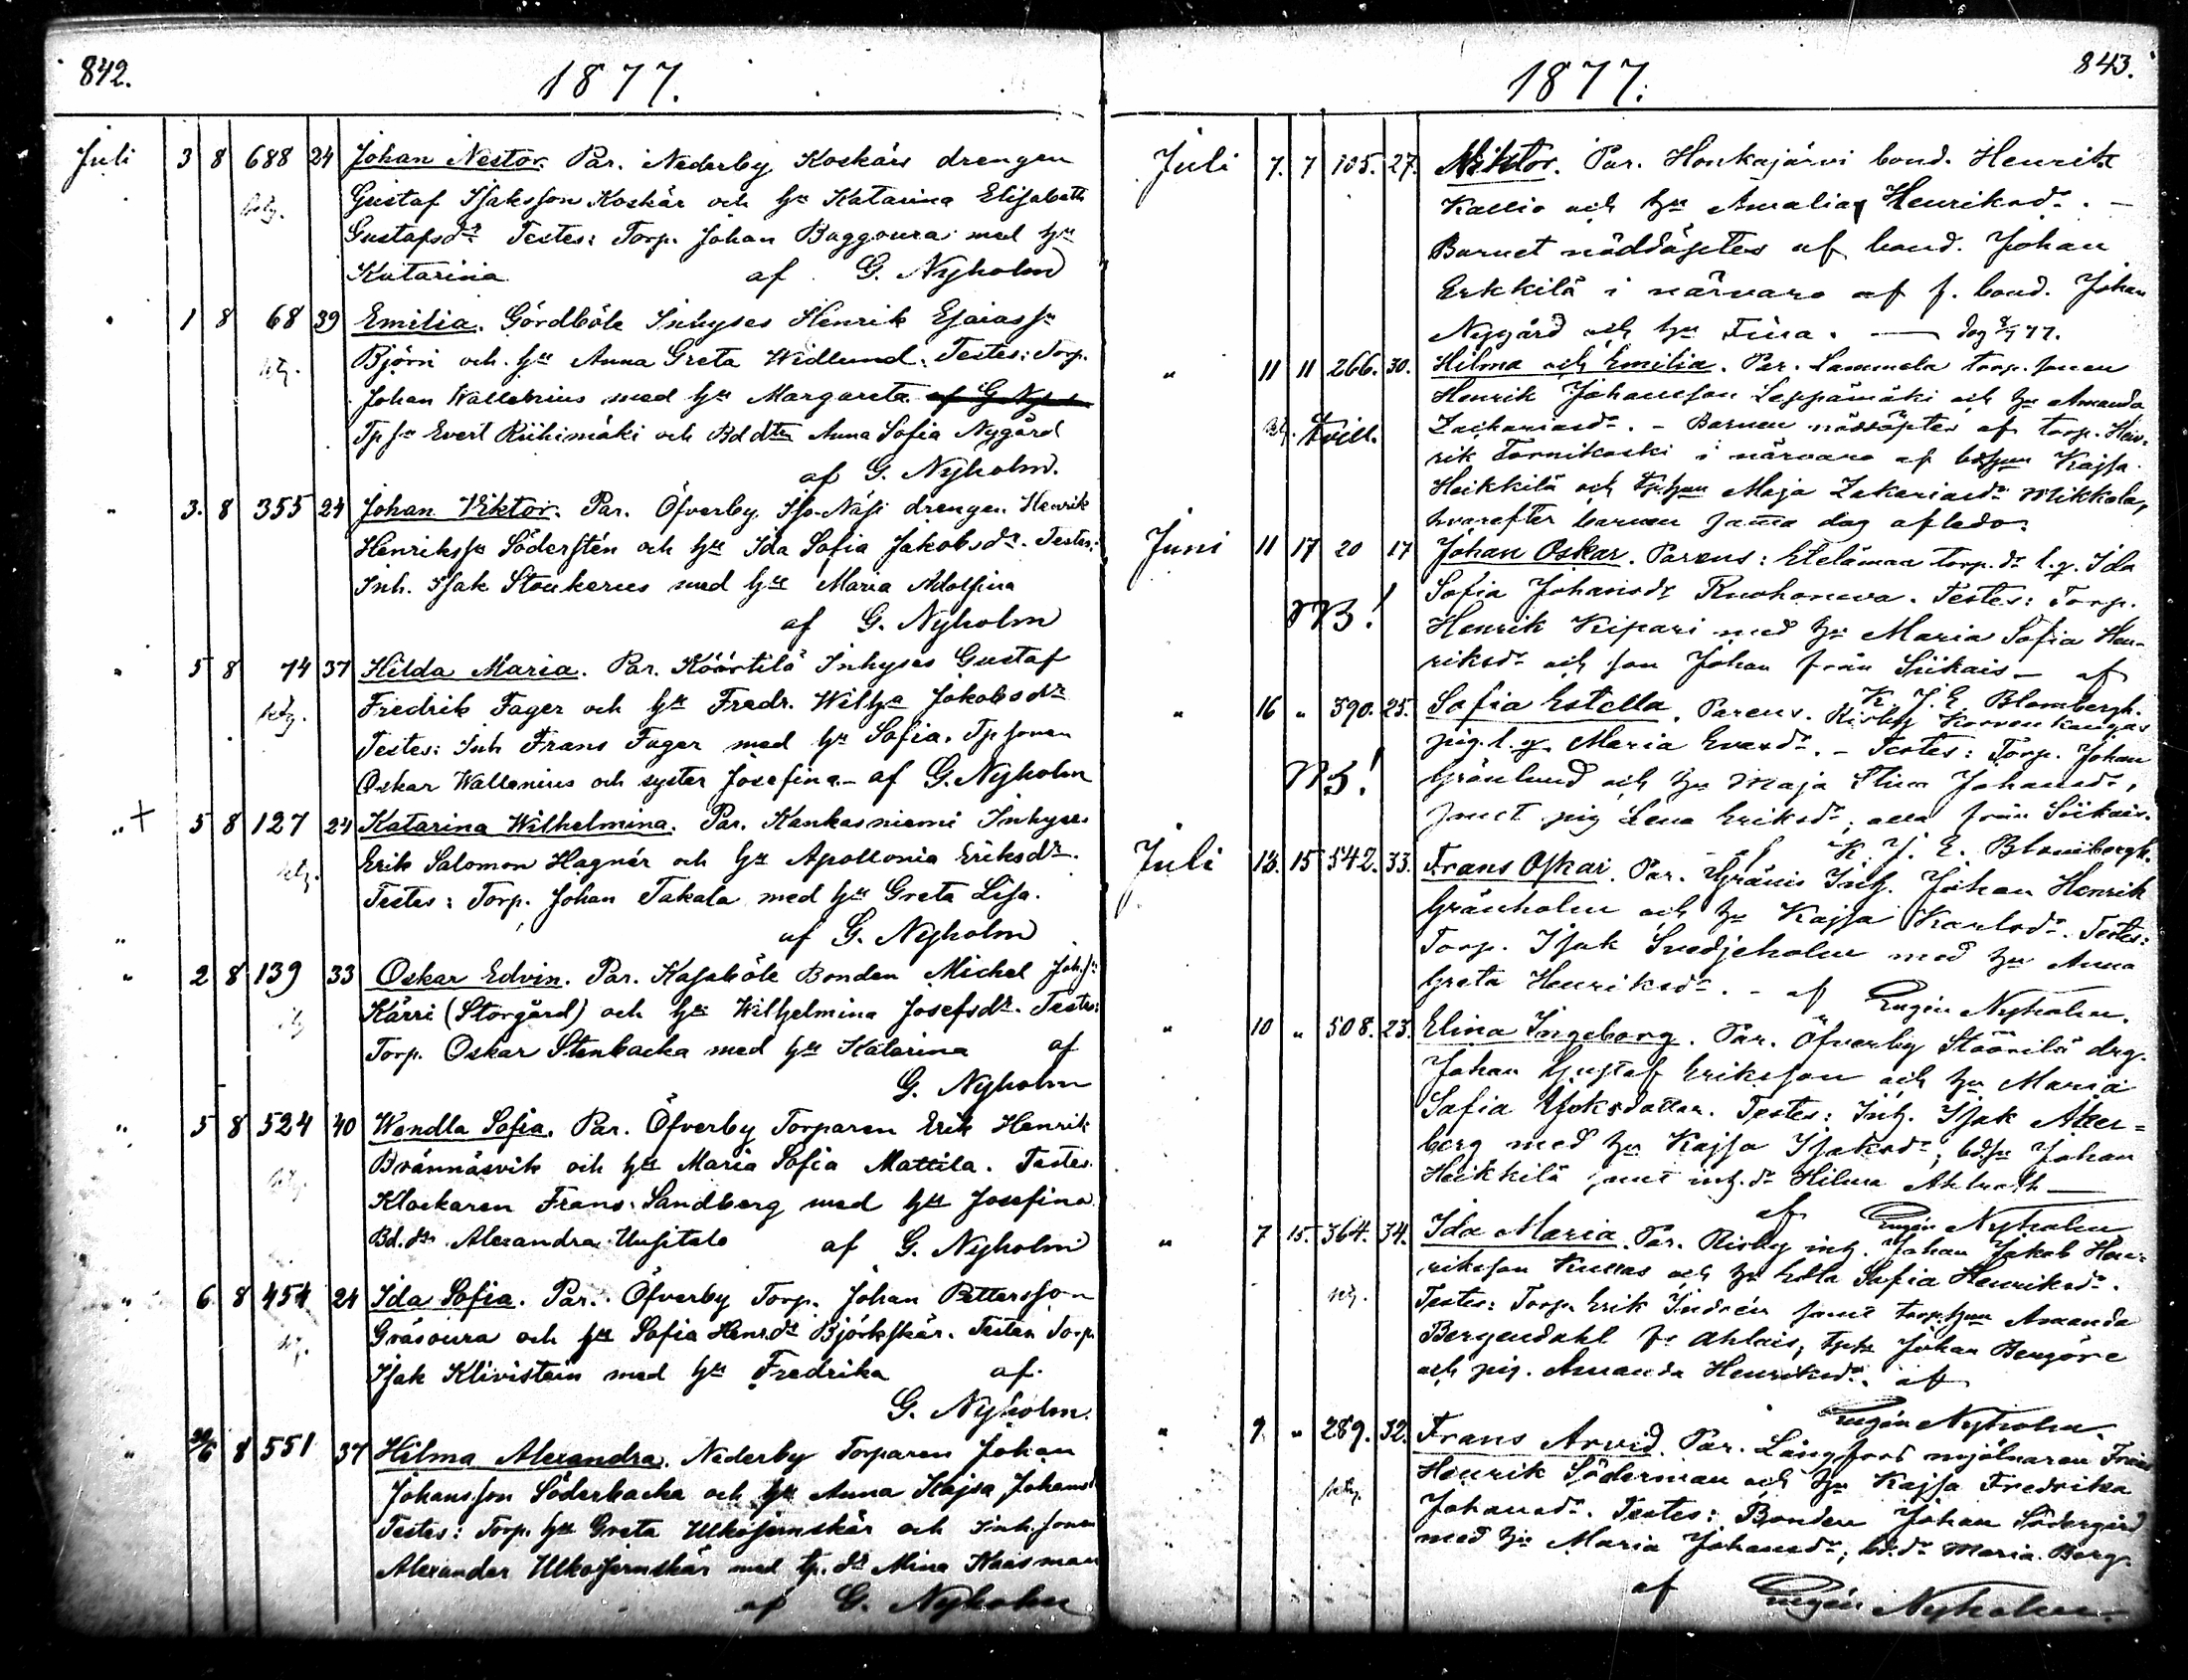 842.
1877.
Juli 3 8 688 24 Johan Nestor. Par. Nederby Koskärs drengen
betg. Gustaf Isaksson Koskär och hu Katarina Elisabeth
Gustafsdr Testes: Torp. Johan Baggoura med hu
Katarina af G. Nyholm
" 1 8 68 39 Emilia. Gördböle Inhyses Henrik Esaiass
betg. Björn och hu Anna Greta Widlund. Testes: Torp.
Johan Wallenius med hu Margareta af G Nyholm
Tp sn Evert Riihimäki och Bd dtn Anna Sofia Nygård
af G. Nyholm.
" 3. 8 355 24 Johan Viktor. Par. Öfverby Iso-Näsi drengen Henrik
Henrikss Söderstén och hu Ida Sofia Jakobsdr. Testes:
Inh. Isak Stenkerus med hu Maria Adolfina
af G. Nyholm
" 5 8 74 37 Hilda Maria. Par. Köörtilä Inhyses Gustaf
betg. Fredrik Fager och hu Fredr. Wilha Jakobsdr
Testes: Inh Frans Fager med hu Sofia. Tp sonen
Oskar Wallenius och syster Josefina - af G. Nyholm
" + 5 8 127 24 Katarina Wilhelmina. Par. Kankasniemi Inhyses
betg. Erik Salomon Hagnér och hu Apollonia Eriksdr.
Testes: Torp. Johan Takala med hu Greta Lisa.
" af G. Nyholm
" 2 8 139 33 Oskar Edvin. Par. Kasaböle Bonden Michel Johs
Kärri (Storgård) och hu Wilhelmina Josefsdr. Testes:
Torp. Oskar Stenbacka med hu Katarina af
G. Nyholm
" 5 8 524 40 Wendla Sofia. Par. Öfverby Torparen Erik Henrik
betg. Brännäsvik och hu Maria Sofia Mattila. Testes
Klockaren Frans Sandberg med hu Josefina
Bd. dr Alexandra Uusitalo af G. Nyholm
" 6 8 454 24 Ida Sofia. Par. Öfverby Torp. Johan Pettersson
betg. Gräsoura och hu Sofia Henrdr Björkskär. Testes Torp
Isak Klivistein med hu Fredrika af.
G. Nyholm.
" 8 551 37 Hilma Alexandra. Nederby Torparen Johan
Johansson Söderbacka och hu Anna Kajsa Johansd
Testes: Torp. hu Greta Ulkojernskär och Inh. sonen
Alexander Ulkojernskär med tp. dr Mina Kaasman
af G. Nyholm
843.
1877.
Juli 7. 7 105. 27. Viktor. Par. Honkajärvi bond. Henrik
Kallio och hu Amalia Henriksdr. -
Barnet nöddöptes af bond. Johan
Erkkilä i närvaro af f. bond. Johan
Nygård och hu Fina. — dog 8/7 77.
" 11 11 266. 30. Hilma och Emilia. Par. Lammela torp. sonen
Henrik Johansson Leppämäki och hu Amanda
Btg. Tvill. Zachariasdr. - Barnen nöddöptes af torp. Hen-
rik Tornikoski i närvaro af bdhun Kajsa
Heikkilä och tphun Maja Zakariasdr Mikkola,
hvarefter barnen samma dag afledo.
Juni 11 17 20 17 Johan Oskar. Parens: Etelämaa torp. dr l. q. Ida
NB! Sofia Johansdr Ruohoneva. Testes: Torp.
Henrik Kipari med hu Maria Sofia Hen-
riksdr och son Johan från Siikais - af
K. J. E. Blombergh.
" 16 " 390. 25. Sofia Estella. Parens. Risby Korvenkangas
pig. l. q. Maria Evardr. - Testes: Torp. Johan
NB! Grönlund och hu Maja Stina Johansdr,
samt pig Lena Eriksdr, alla från Siikais.
af K. J. E. Blombergh.
Juli 13. 15 542. 33. Frans Oskar. Par. Gränis Inh. Johan Henrik
Gränholm och hu Kajsa Karlsdr. Testes:
Torp. Isak Svedjeholm med hu Anna
Greta Henriksdr. - af Eugén Nyholm.
" 10 " 508. 23. Elina Ingeborg. Par. Öfverby Stöörilä drg.
Johan Gustaf Eriksson och hu Maria
Sofia Isaksdotter. Testes: Inh. Isak Åker=
berg med hu Kajsa Isaksdr; bdsn Johan
Heikkilä samt inh. dr Hilma Ahlroth —
af Eugén Nyholm
" 7 15. 364. 34. Ida Maria. Par. Risby inh. Johan Jakob Hen-
riksson Kuusas och hu Edla Sofia Henriksdr.
betg. Testes: Torp. Erik Indrén samt torp.hun Amanda
Bergendahl fr Ahlais, tpsn Johan Bengöre
och pig. Amanda Henriksdr. af
Eugén Nyholm.
" 9. " 289. 32. Frans Arvid. Par. Långfors mjölnaren Frans
Henrik Söderman och hu Kajsa Fredrika
betg. Johansdr. Testes: Bonden Johan Södergård
med hu Maria Johansdr; bd.dr Maria Berg.
af Eugén Nyholm.